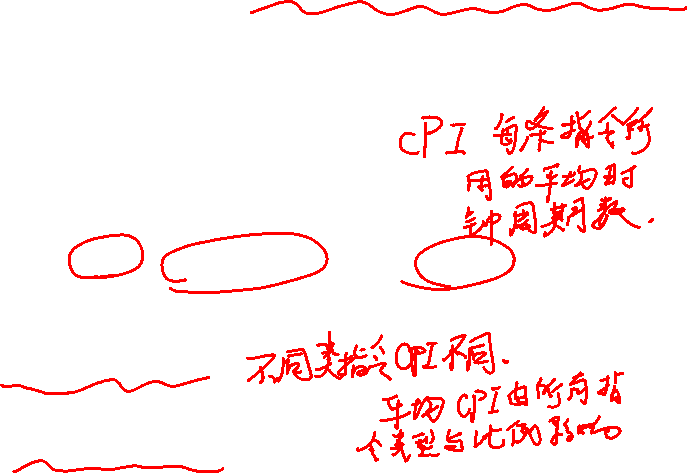 CPI 每条指令所
用的平均时
钟周期数.
不同类指令CPI不同.
平均CPI由所有指
令类型与比例影响